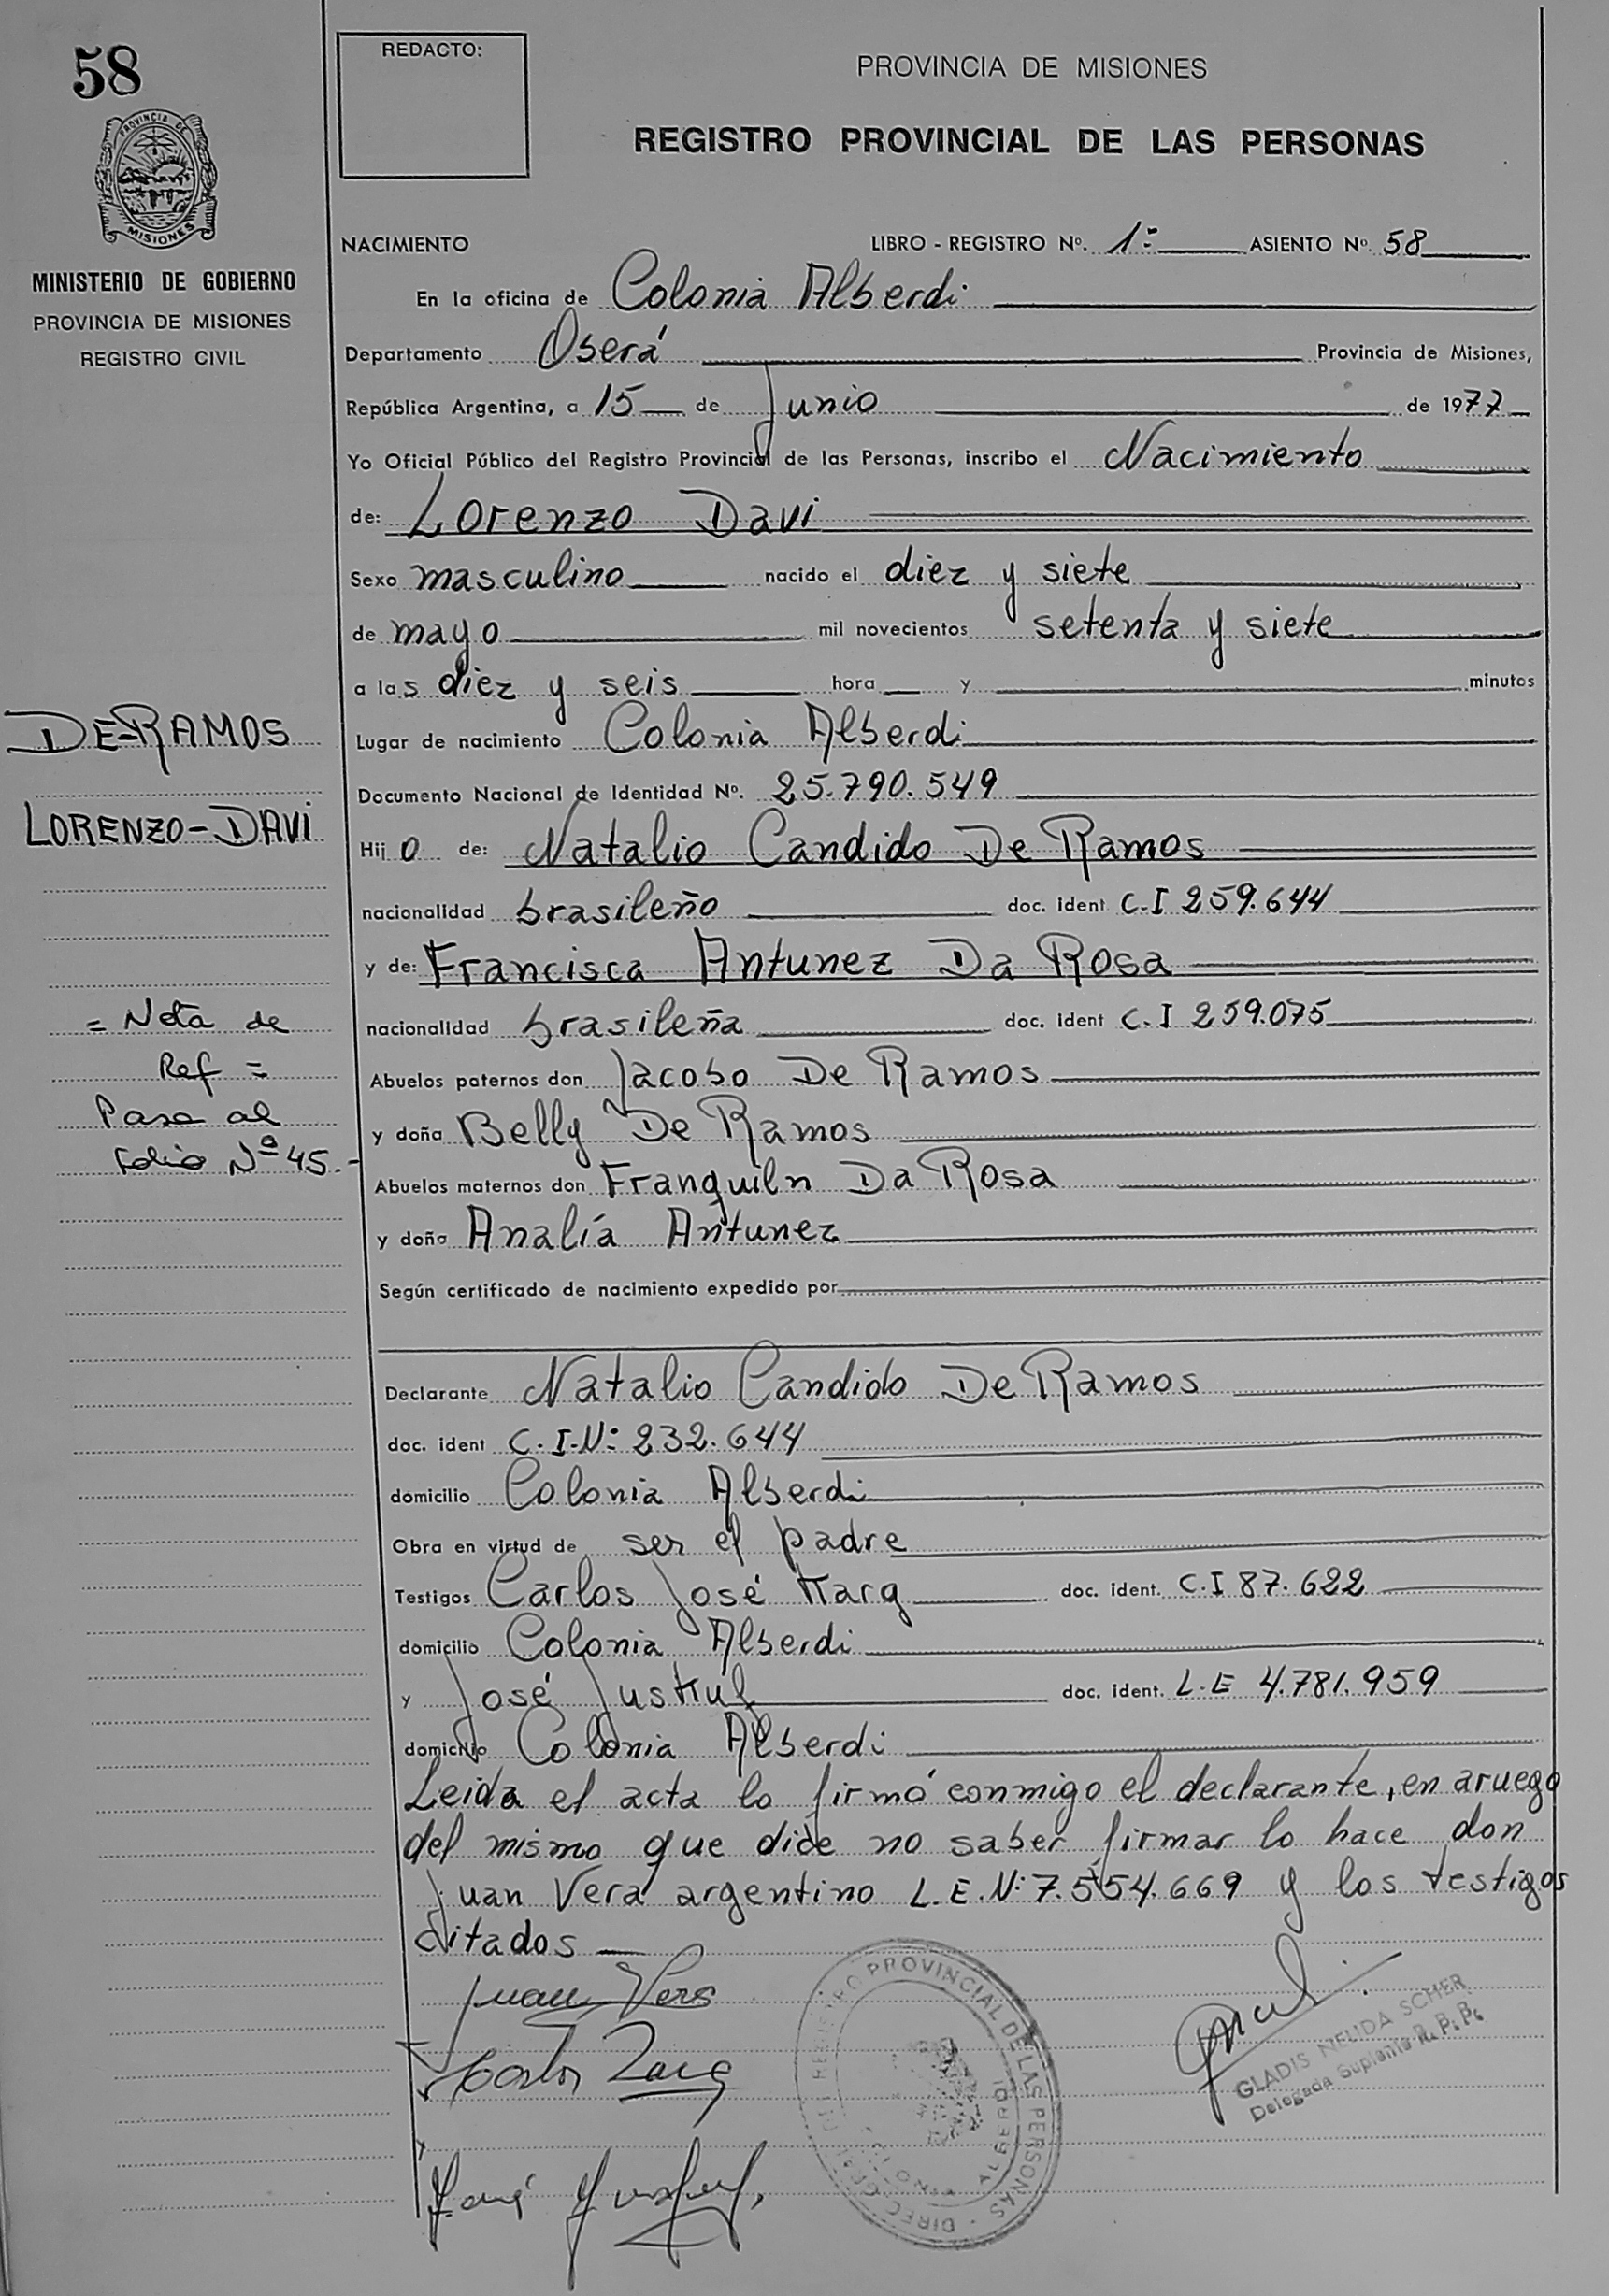 58
PROVINCIA DE
MISIONES
MINISTERIO DE GOBIERNO
PROVINCIA DE MISIONES
REGISTRO CIVIL
DE-RAMOS
LORENZO-DAVI
= Nota de
Ref =
Pasa al
Folio Nº 45.-
REDACTO:
PROVINCIA DE MISIONES
REGISTRO PROVINCIAL DE LAS PERSONAS
NACIMIENTO LIBRO - REGISTRO Nº. 1º ASIENTO Nº. 58
En la oficina de Colonia Alberdi
Departamento Oberá Provincia de Misiones,
República Argentina, a 15 de Junio de 1977
Yo Oficial Público del Registro Provincial de las Personas, inscribo el Nacimiento
de: Lorenzo Davi
Sexo masculino nacido el diez y siete
de mayo mil novecientos setenta y siete
a las diez y seis hora y minutos
Lugar de nacimiento Colonia Alberdi
Documento Nacional de Identidad Nº. 25.790.549
Hijo de: Natalio Candido De Ramos
nacionalidad brasileño doc. ident C.I 259.644
y de: Francisca Antunez Da Rosa
nacionalidad brasileña doc. ident C.I 259.075
Abuelos paternos don Jacobo De Ramos
y doña Belly De Ramos
Abuelos maternos don Franquiln Da Rosa
y doña Analía Antunez
Según certificado de nacimiento expedido por
Declarante Natalio Candido De Ramos
doc. ident C.I.Nº 232.644
domicilio Colonia Alberdi
Obra en virtud de ser el padre
Testigos Carlos José Karg doc. ident. C.I 87.622
domicilio Colonia Alberdi
y José Juskuf doc. ident. L.E 4.781.959
domicilio Colonia Alberdi
Leida el acta lo firmó conmigo el declarante, en aruego
del mismo que dide no saber firmar lo hace don
Juan Vera argentino L.E.Nº 7.554.669 y los testigos
ditados
Juan Vera
GLADIS NELIDA SCHER
Delegada Suplente R.P.P.
REGISTRO PROVINCIAL DE LAS PERSONAS - DIREC. GRAL. DEL
ALBERDI